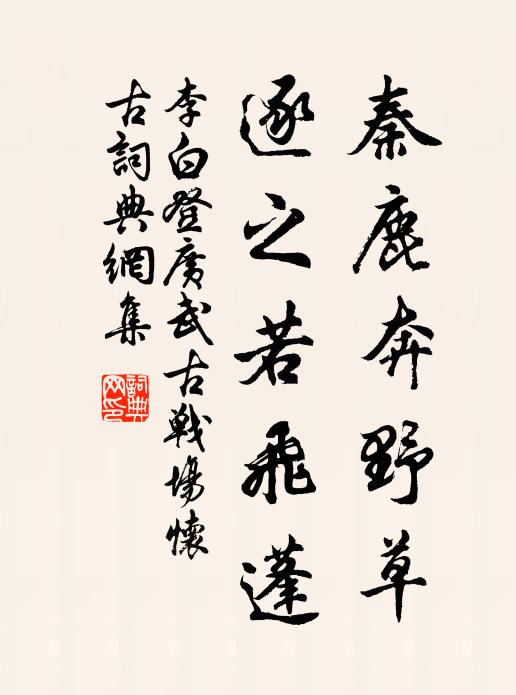 秦鹿奔野草
逐之若飛蓬
李白登廣武古戰場懷
古詞典網集
詞典
网印